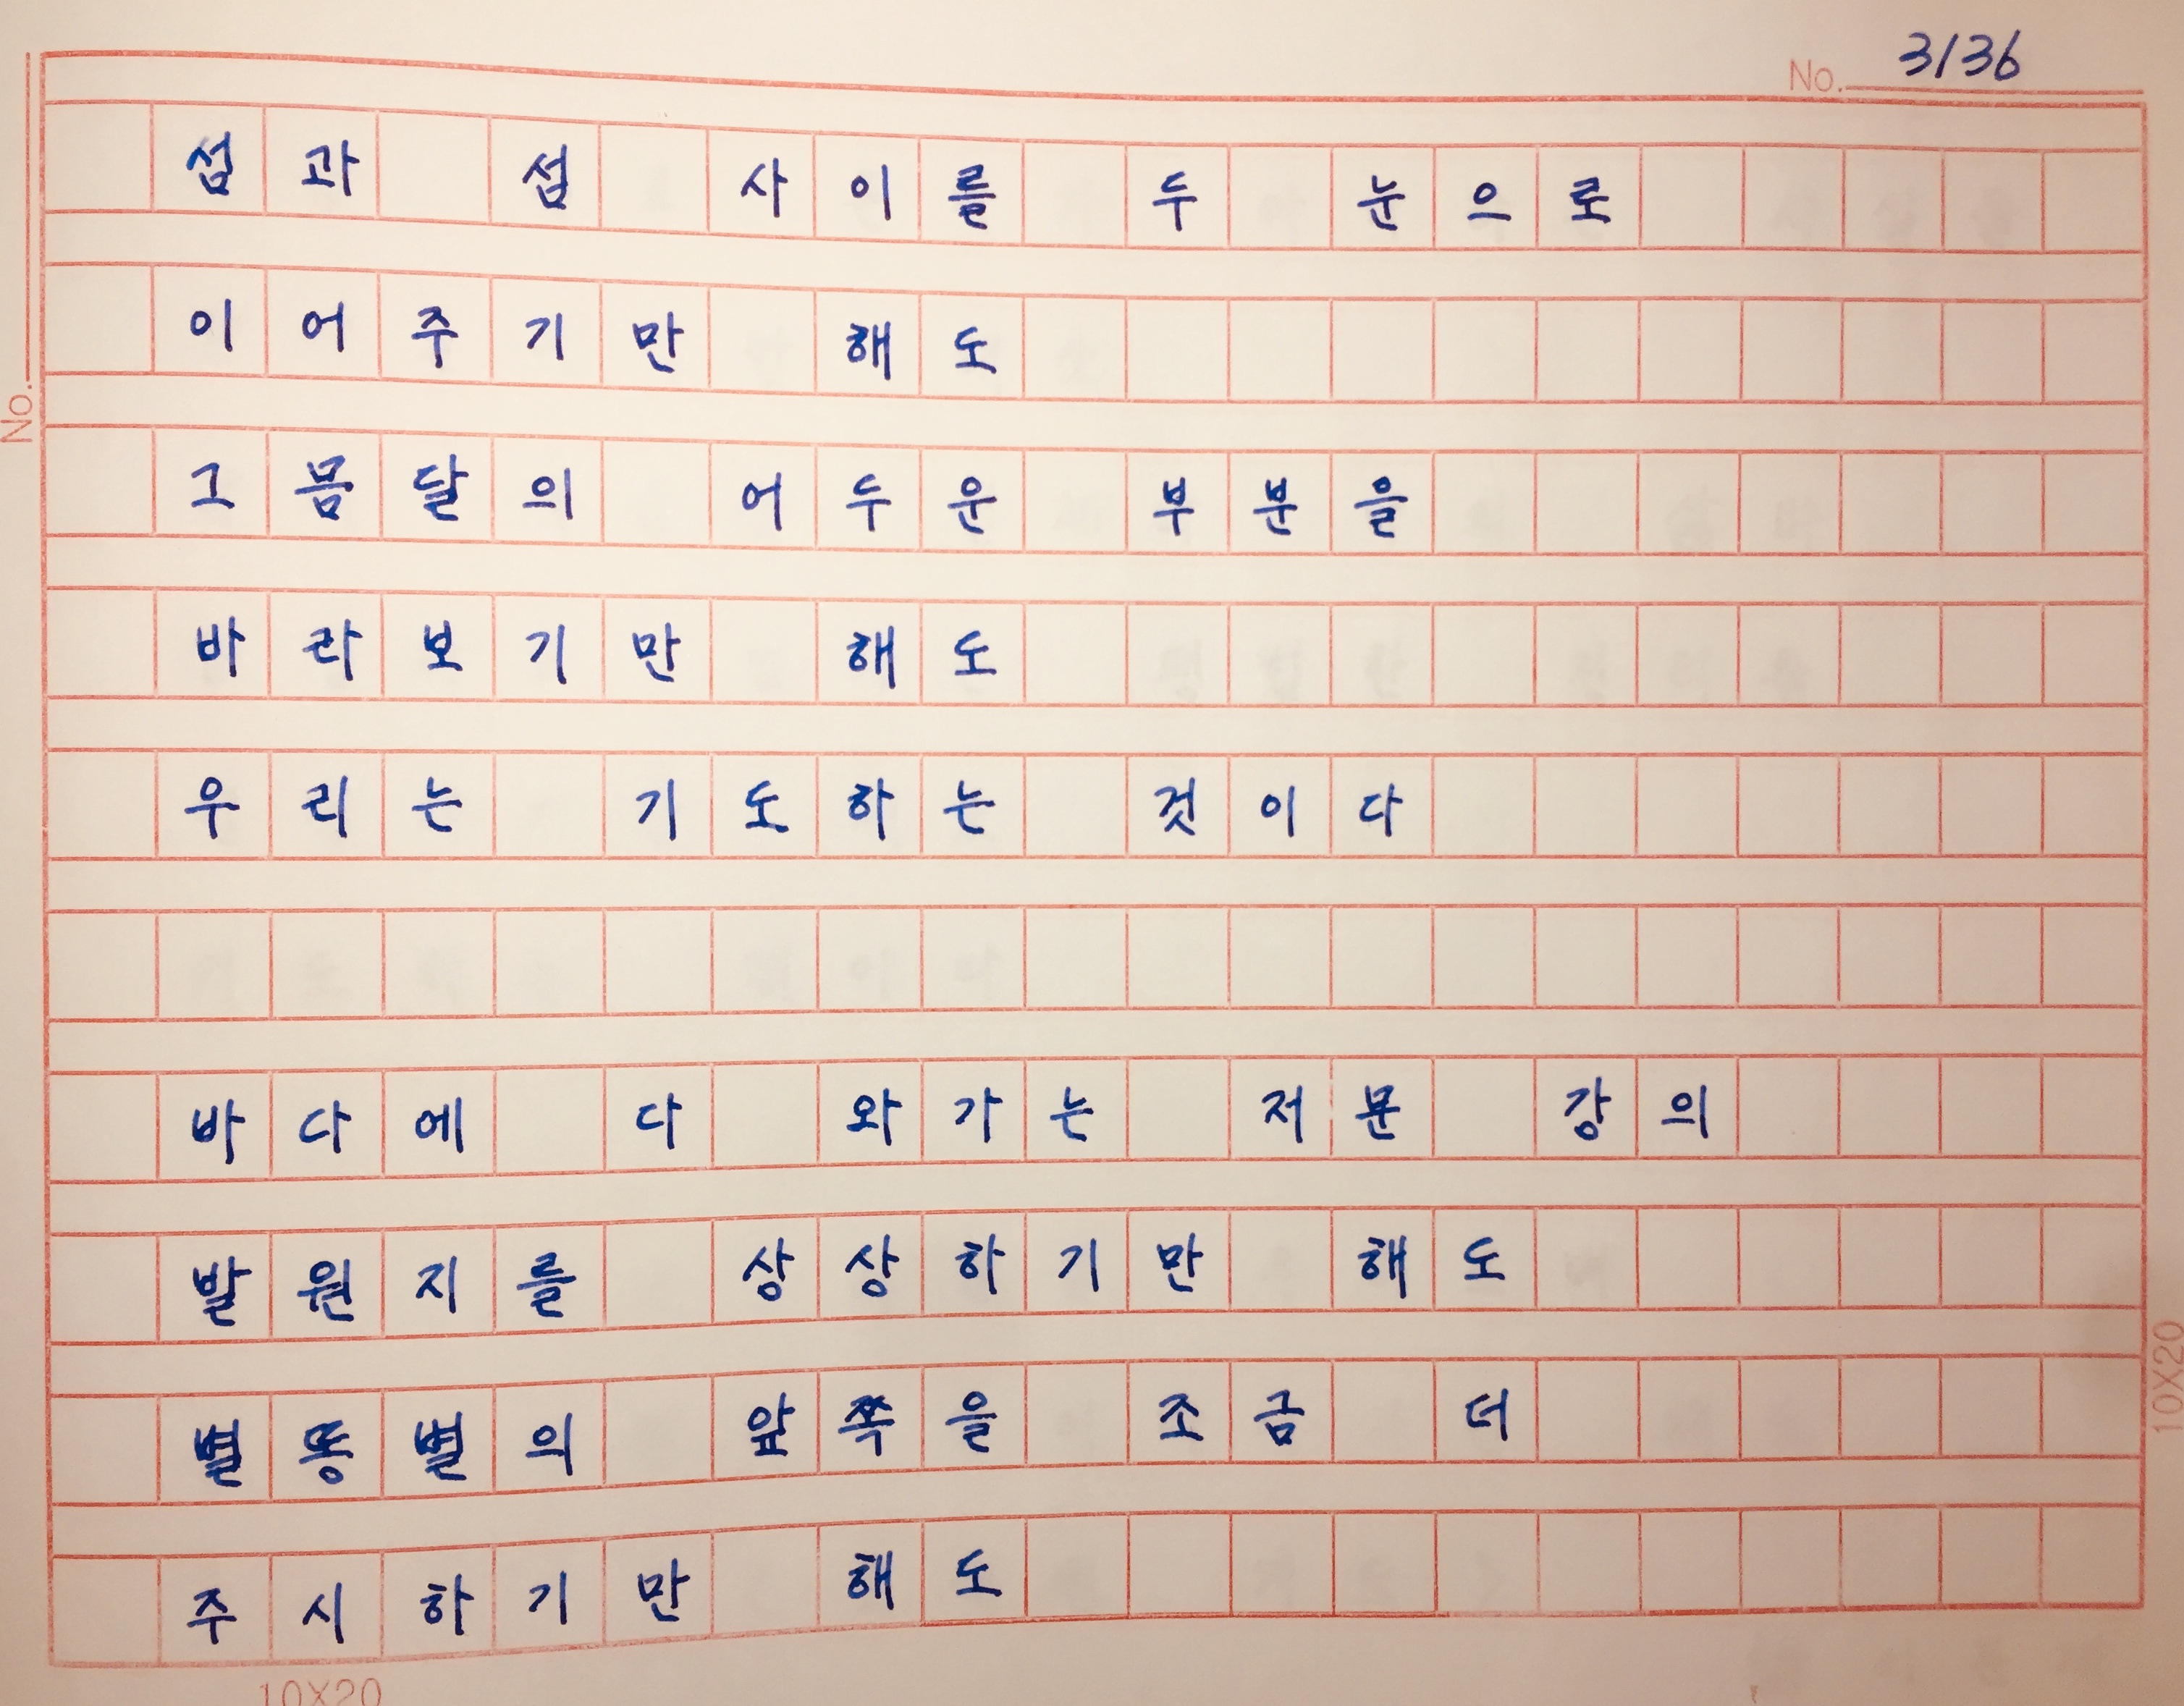 No. 3136
섬과 섬 사이를 두 눈으로
이어주기만 해도
그믐달의 어두운 부분을
바라보기만 해도
우리는 기도하는 것이다
바다에 다 와가는 저문 강의
발원지를 상상하기만 해도
별똥별의 앞쪽을 조금 더
주시하기만 해도
No.
10X20
10X20